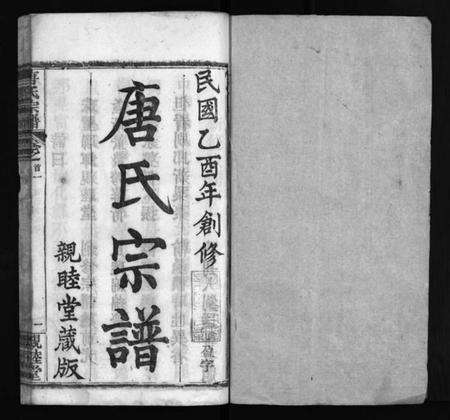 民國乙酉年創修
唐氏宗譜
親睦堂藏版
唐氏宗譜
卷首一
一
親睦堂